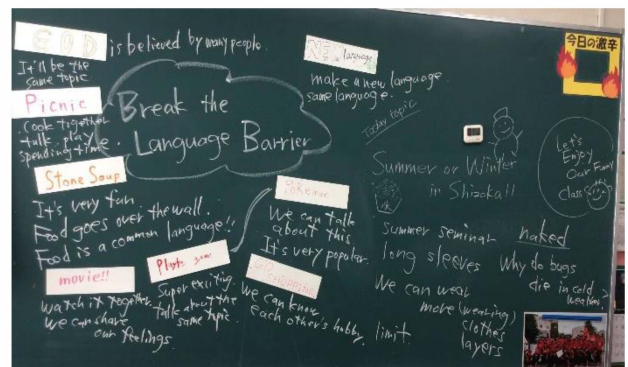 GOD is believed by many people.
It'll be the
same topic
Picnic
Cook together
talk, play
spending time.
Break the
Language Barrier
Stone Soup
It's very fun
Food goes over the wall.
Food is a common language!!
movie!!
watch it together
we can share
our feelings
Super exciting.
talk about the
same topic.
We can talk
about this
It's very popular.
Go shopping
We can know
each other's hobby.
New language
make a new language
same language.
Today topic
Summer or Winter
in Shizoka!!
summer seminar
long sleeves
We can wear
more (wearing)
clothes
layers
limit.
naked
Why do bugs
die in cold
weather?
今日の激辛
Let's
Enjoy
Our Funny
Class